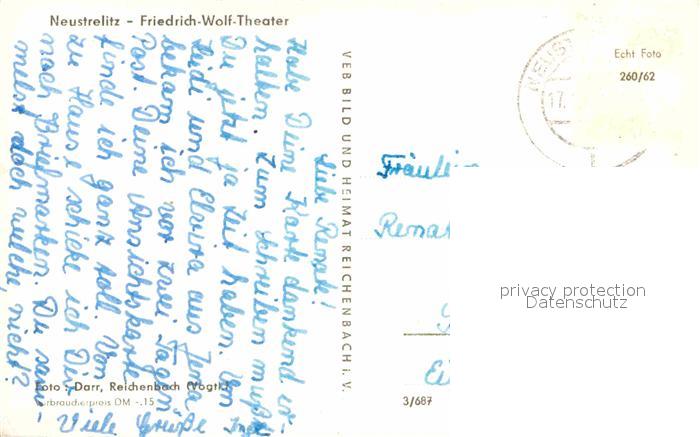 Neustrelitz - Friedrich-Wolf-Theater
Liebe Renate!
Habe Deine Karte dankend er-
halten. Zum schreiben mußt
Du jetzt ja Zeit haben. Von
Heidi und Elvira aus Jena
bekam ich vor zwei Tagen
Post. Deine Ansichtskarte
finde ich ganz toll. Von
zu Hause schicke ich Dir
noch Briefmarken. Du sam-
melst doch welche, nicht?
Viele Grüße
Foto: Darr, Reichenbach (Vogtl.)
Verbraucherpreis DM -.15
VEB BILD UND HEIMAT REICHENBACH i. V.
Echt Foto
260/62
NEUST
17.
Fräulein
Renat
Ei
3/687
privacy protection
Datenschutz